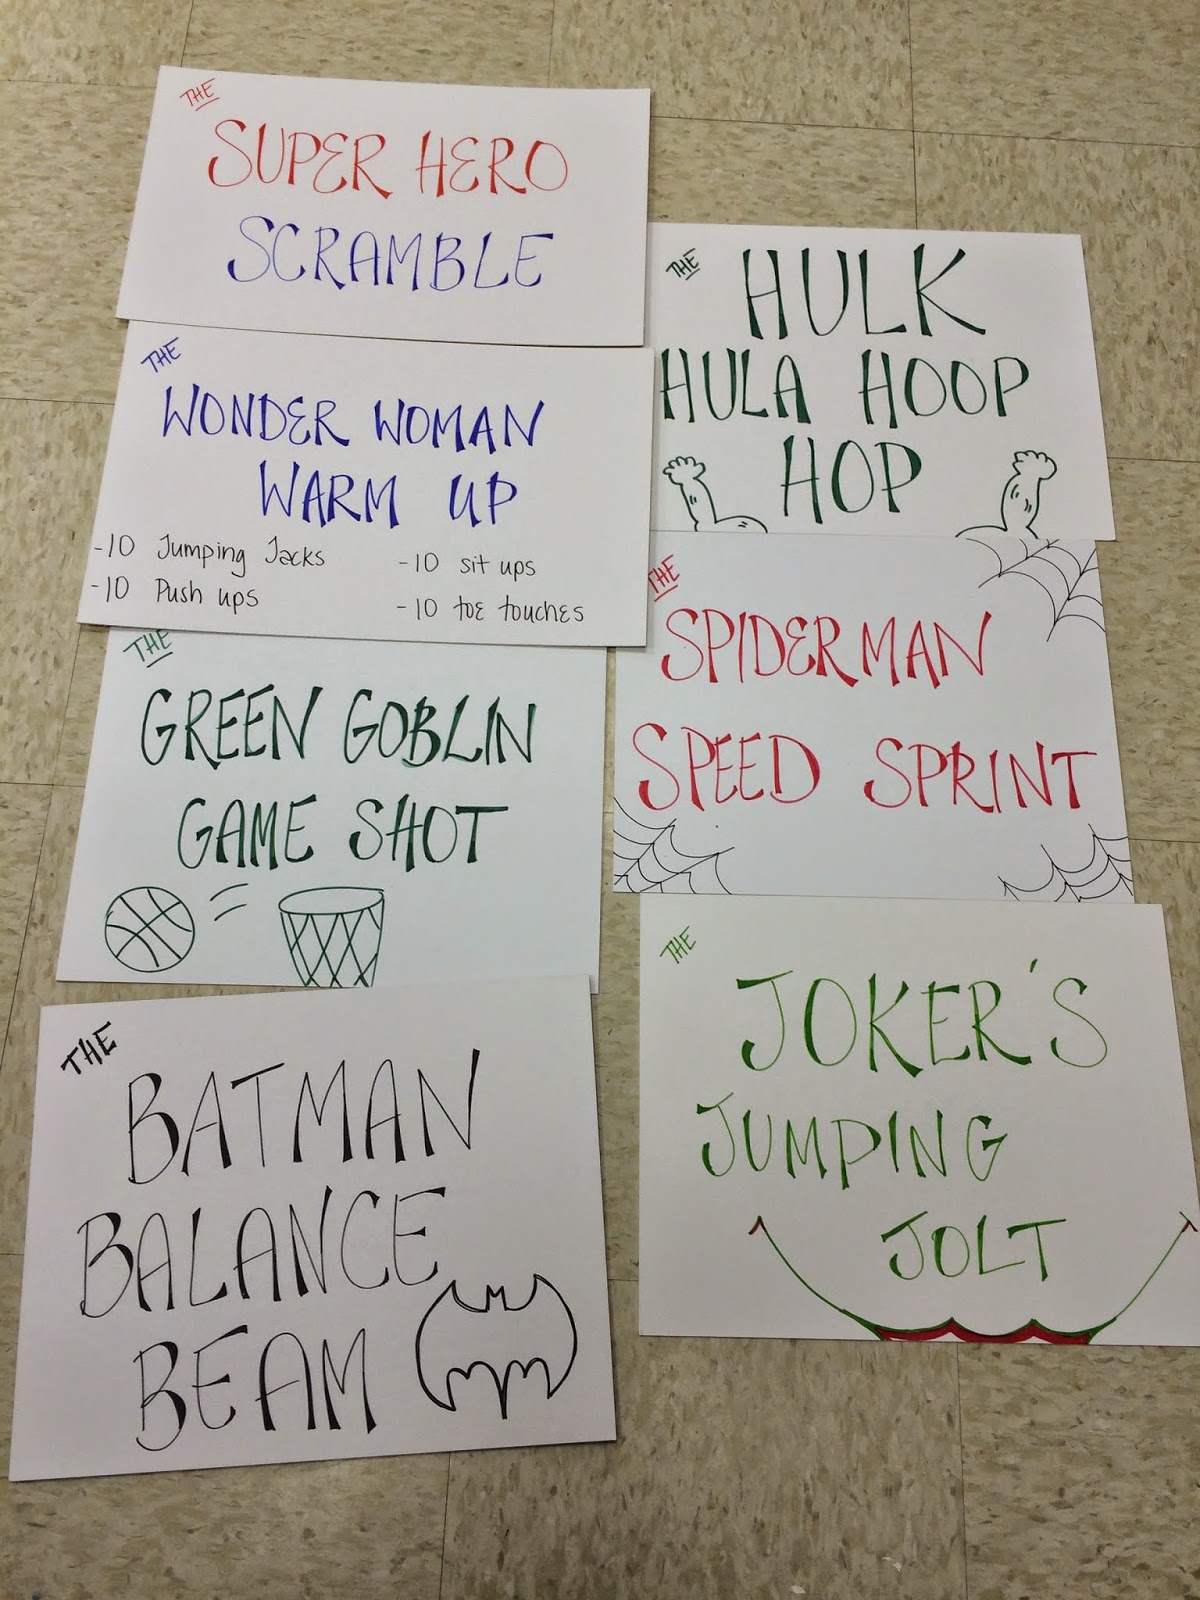 THE
SUPER HERO
SCRAMBLE
THE
WONDER WOMAN
WARM UP
-10 Jumping Jacks
-10 Push ups
-10 sit ups
-10 toe touches
THE
GREEN GOBLIN
GAME SHOT
THE
BATMAN
BALANCE
BEAM
THE
HULK
HULA HOOP
HOP
THE
SPIDERMAN
SPEED SPRINT
THE
JOKER'S
JUMPING
JOLT